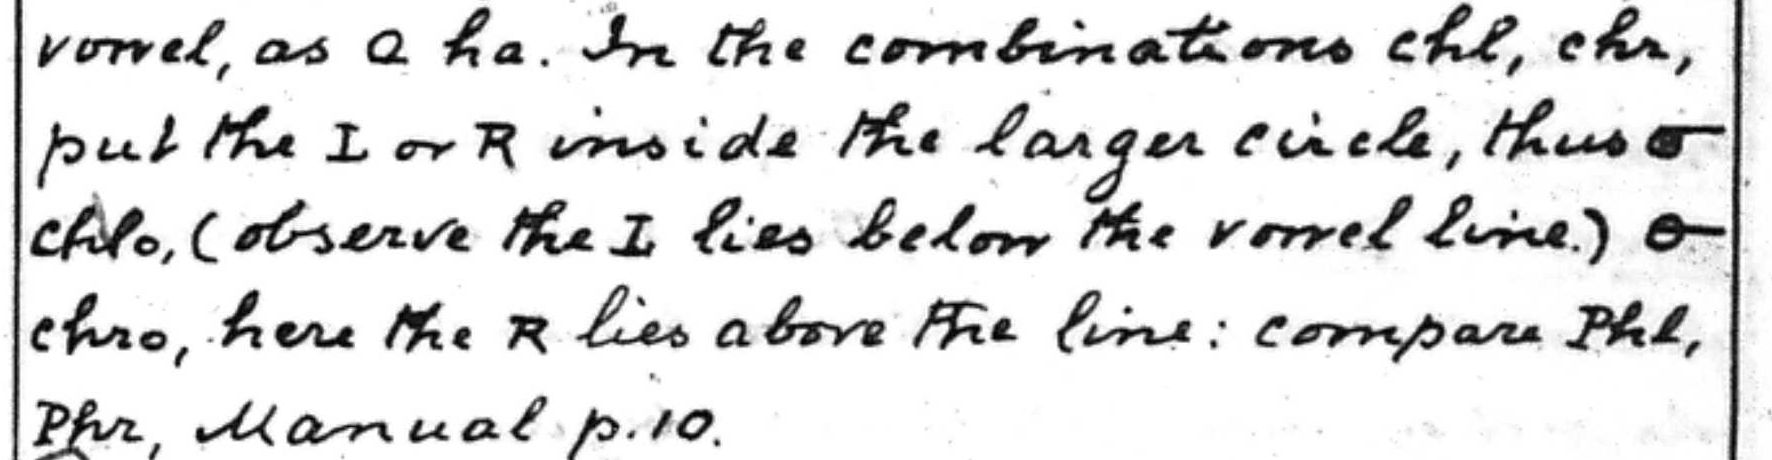 vowel, as ha. In the combinations chl, chr,
put the L or R inside the larger circle, thus
chlo, (observe the L lies below the vowel line.)
chro, here the R lies above the line: compare Phl,
Phr, Manual p.10.